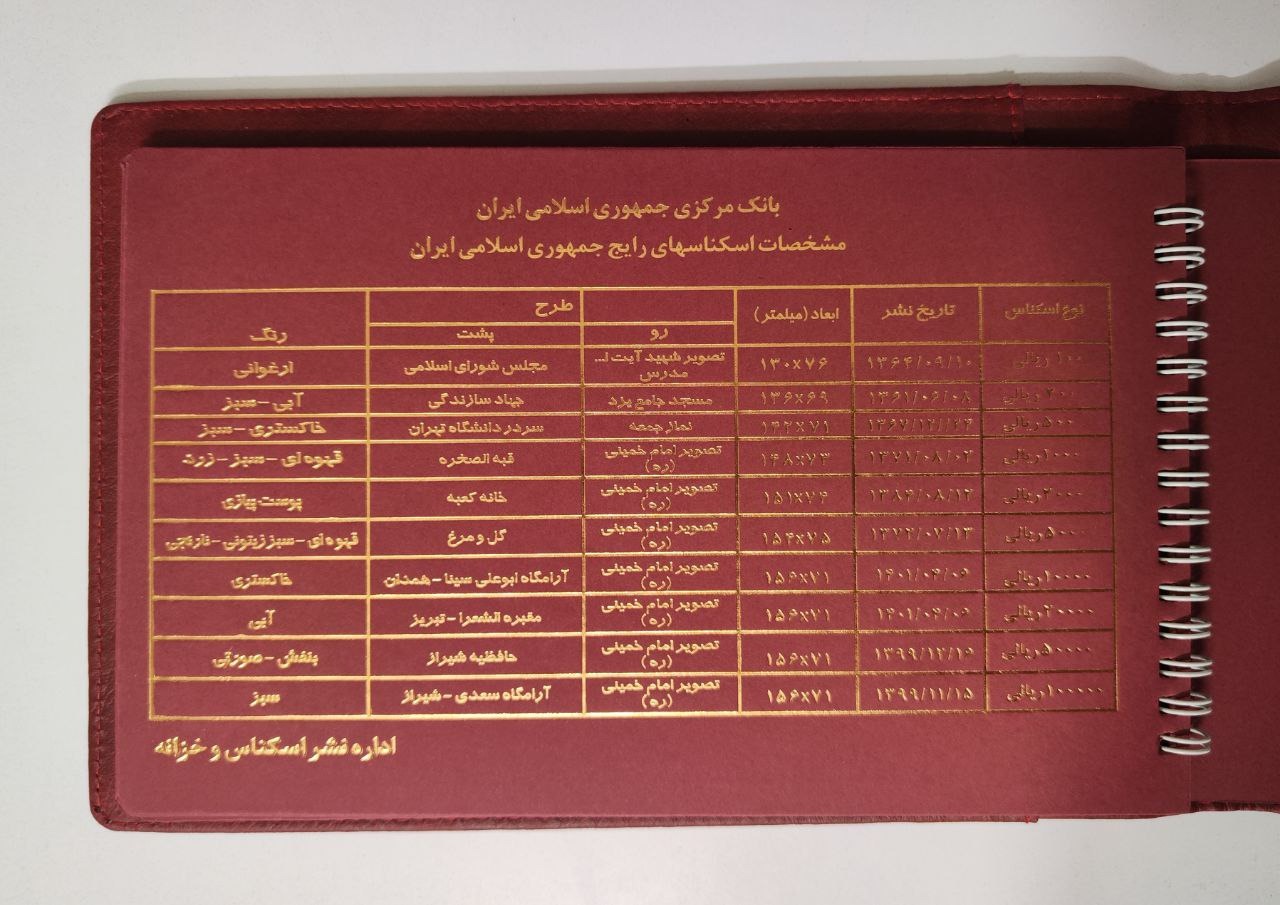 بانک مرکزی جمهوری اسلامی ایران
مشخصات اسکناسهای رایج جمهوری اسلامی ایران
نوع اسکناس تاریخ نشر ابعاد (میلمتر) طرح رنگ
رو پشت
۱۰۰ ریالی ۱۳۶۴/۰۹/۱۰ ۱۳۰x۷۶ تصویر شهید آیت ا... مدرس مجلس شورای اسلامی ارغوانی
۲۰۰ ریالی ۱۳۶۱/۰۶/۰۸ ۱۳۶x۶۹ مسجد جامع یزد جهاد سازندگی آبی - سبز
۵۰۰ ریالی ۱۴۲x۷۱ نماز جمعه سردر دانشگاه تهران خاکستری - سبز
۱۰۰۰ ریالی ۱۳۷۱/۰۸/۰۲ ۱۴۸x۷۳ تصویر امام خمینی (ره) قبه الصخره قهوه ای - سبز - زرد
۲۰۰۰ ریالی ۱۳۸۴/۰۸/۱۲ ۱۵۱x۷۴ تصویر امام خمینی (ره) خانه کعبه پوست پیازی
۵۰۰۰ ریالی ۱۳۷۲/۰۷/۱۳ ۱۵۴x۷۵ تصویر امام خمینی (ره) گل و مرغ قهوه ای - سبز زیتونی - نارنجی
۱۰۰۰۰ ریالی ۱۴۰۱/۰۴/۰۶ ۱۵۶x۷۱ تصویر امام خمینی (ره) آرامگاه ابوعلی سینا - همدان خاکستری
۲۰۰۰۰ ریالی ۱۴۰۱/۰۴/۰۶ ۱۵۶x۷۱ تصویر امام خمینی (ره) مقبره الشعرا - تبریز آبی
۵۰۰۰۰ ریالی ۱۳۹۹/۱۲/۱۶ ۱۵۶x۷۱ تصویر امام خمینی (ره) حافظیه شیراز بنفش - صورتی
۱۰۰۰۰۰ ریالی ۱۳۹۹/۱۱/۱۵ ۱۵۶x۷۱ تصویر امام خمینی (ره) آرامگاه سعدی - شیراز سبز
اداره نشر اسکناس و خزانه